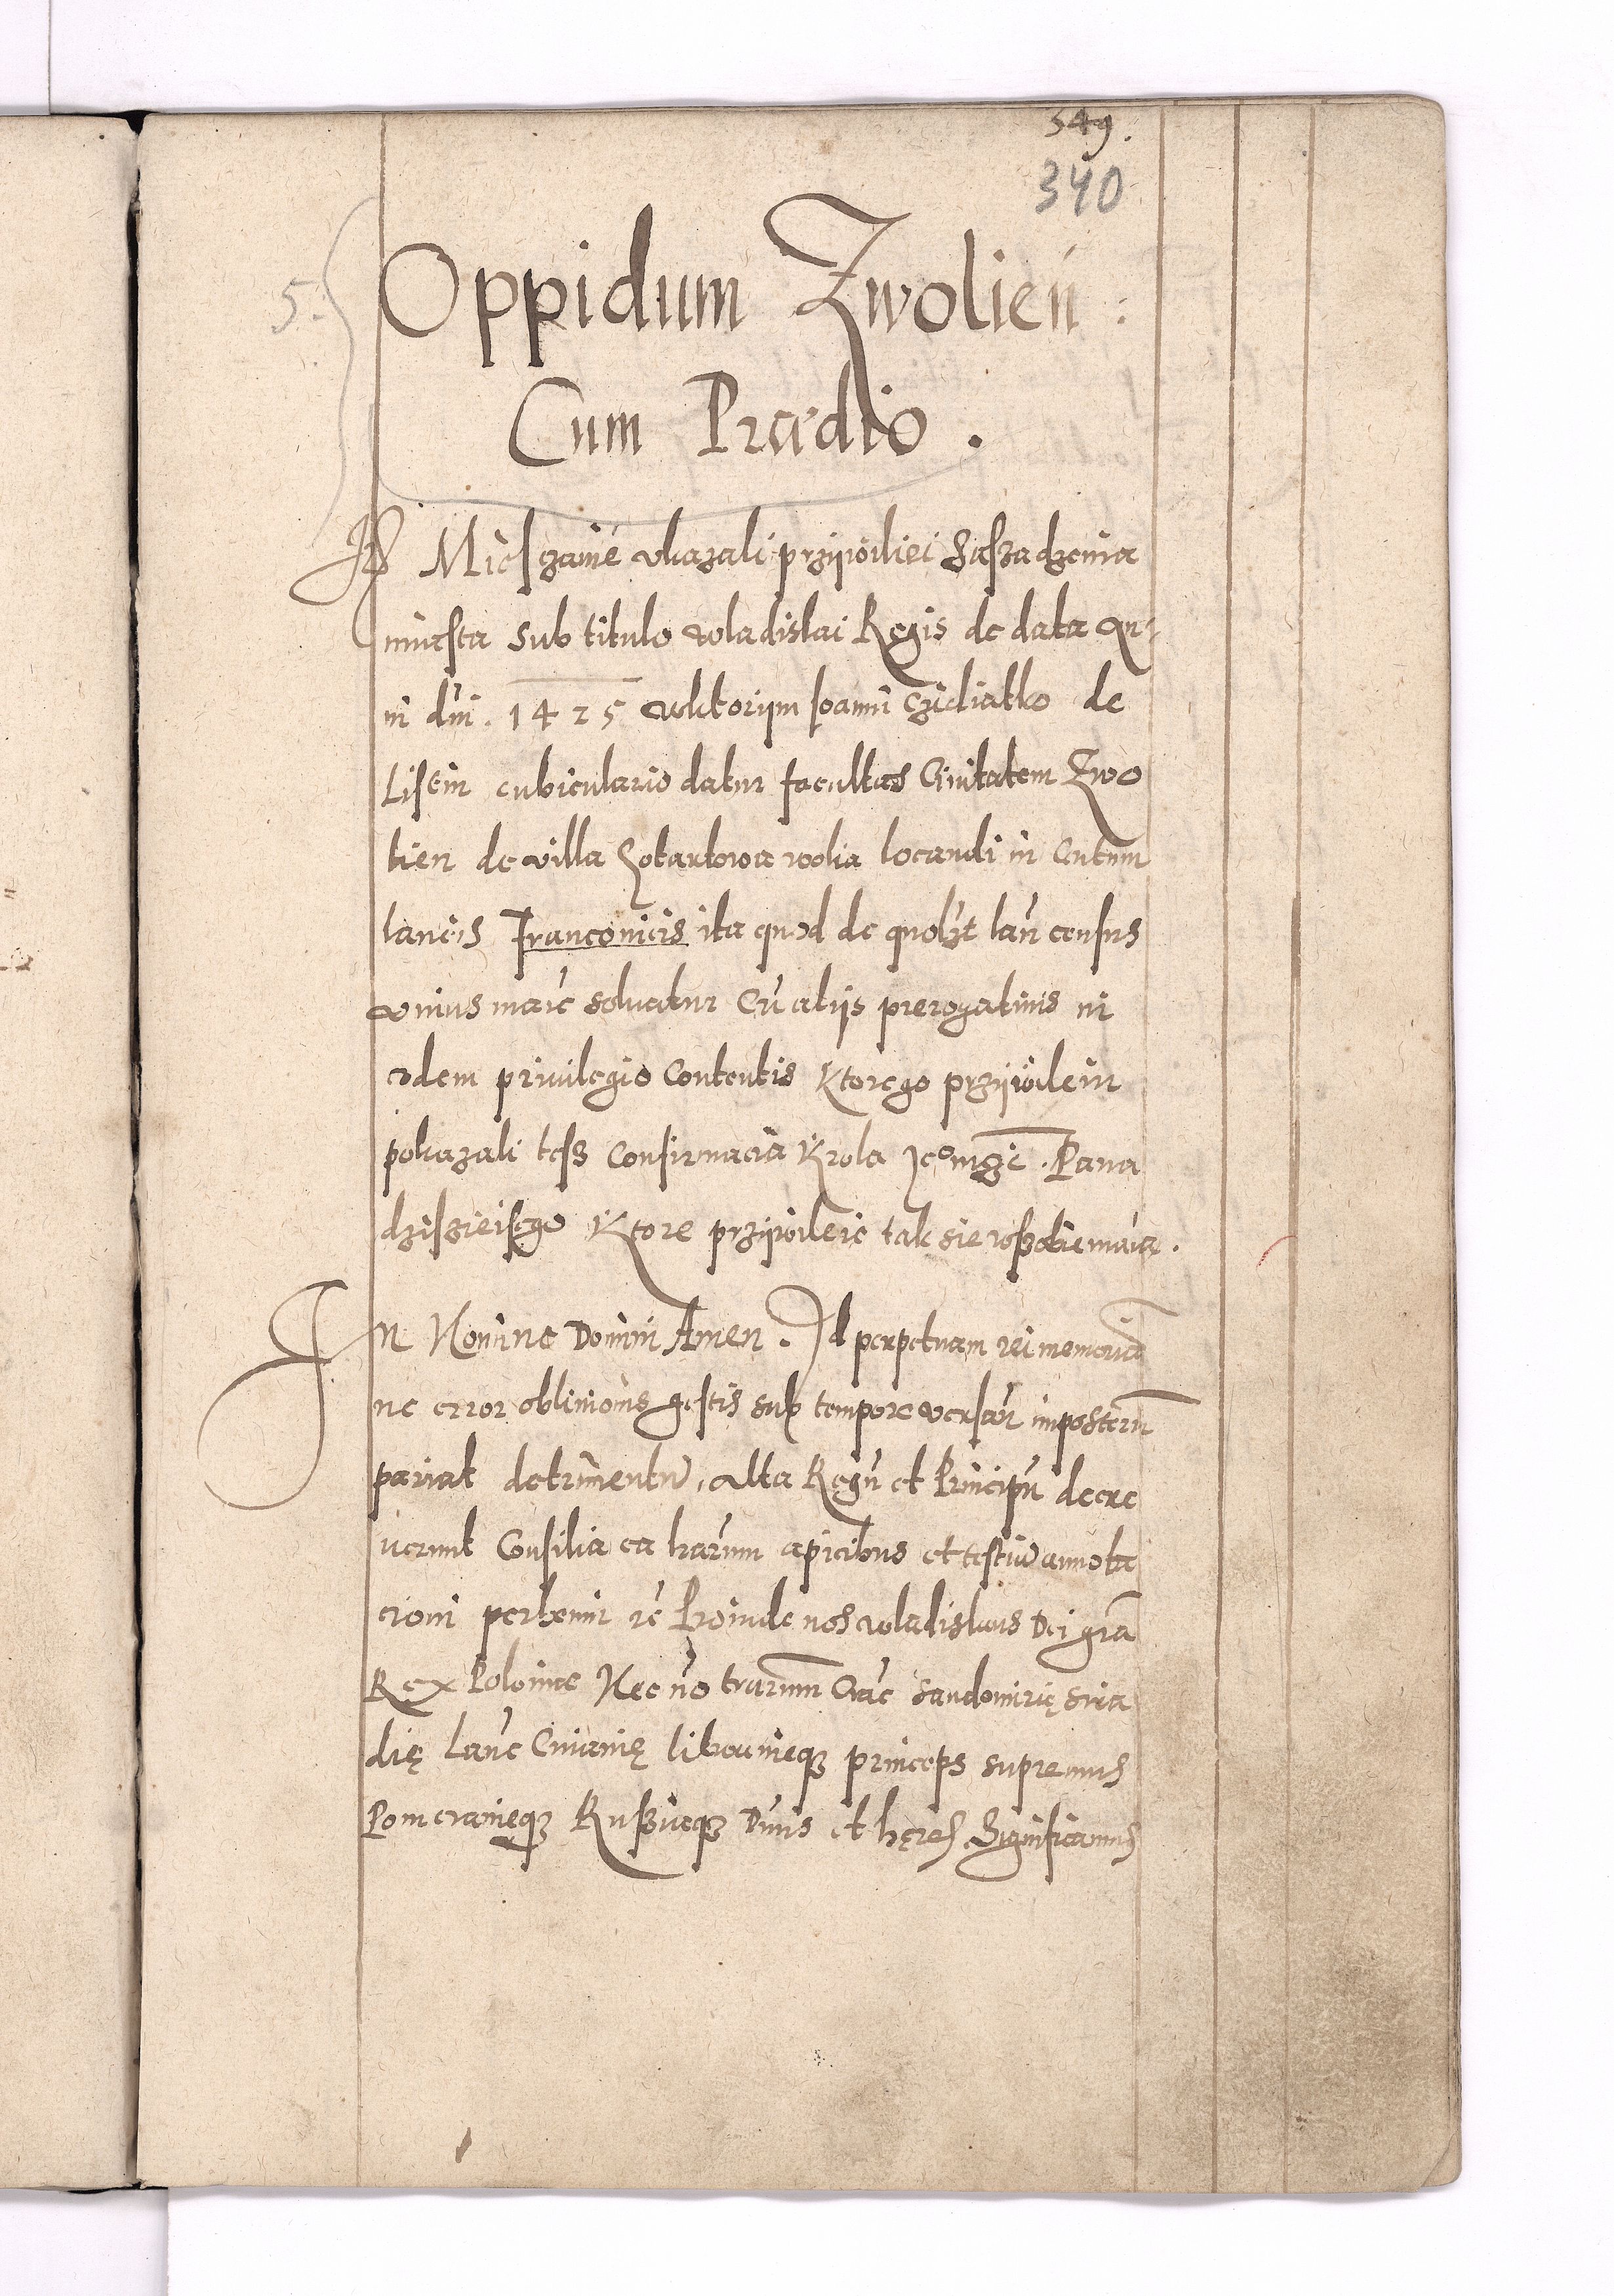 549.
340
5.
Oppidum Zwolień:
Cum Prædio.
Miesczanie vkazali przÿwiliei Saszadzenia
miasta sub titulo wladislai Regis de data An-
ni dni. 1425 Joanni de
Lisein cubiculario datur facultas Civitatem Zwo
lien de villa wolia locandi in Centum
laneis Franconicis ita quod de quolzt lan census
vnius marc soluatur Cu alijs prerogatiuis in
eodem priuilegio Contentis Ktorego przÿwilein
pokazali tesz Confirmacia Krola Jeo mczi. Pana
dzisieisego Ktore przÿwileie tak sie wsobie maia.
In Nomine Domini Amen. Ad perpetuam rei memoria
ne error obliuionis gestis sub tempore versan imposteru
pariat detrimentu, Alta Regu et Principu decre
uerunt Consilia ea lrarum apicibus et testiu annota
cioni perhenni re Proinde nos wladislaus Dei gra
Rex Polonie Nec no trarumm Crac Sandomirię Sira
dię Lanc Cuiauię litwanieqz princeps supremus
Pomeranieqz Russieqz Dnus et hęres Significamus